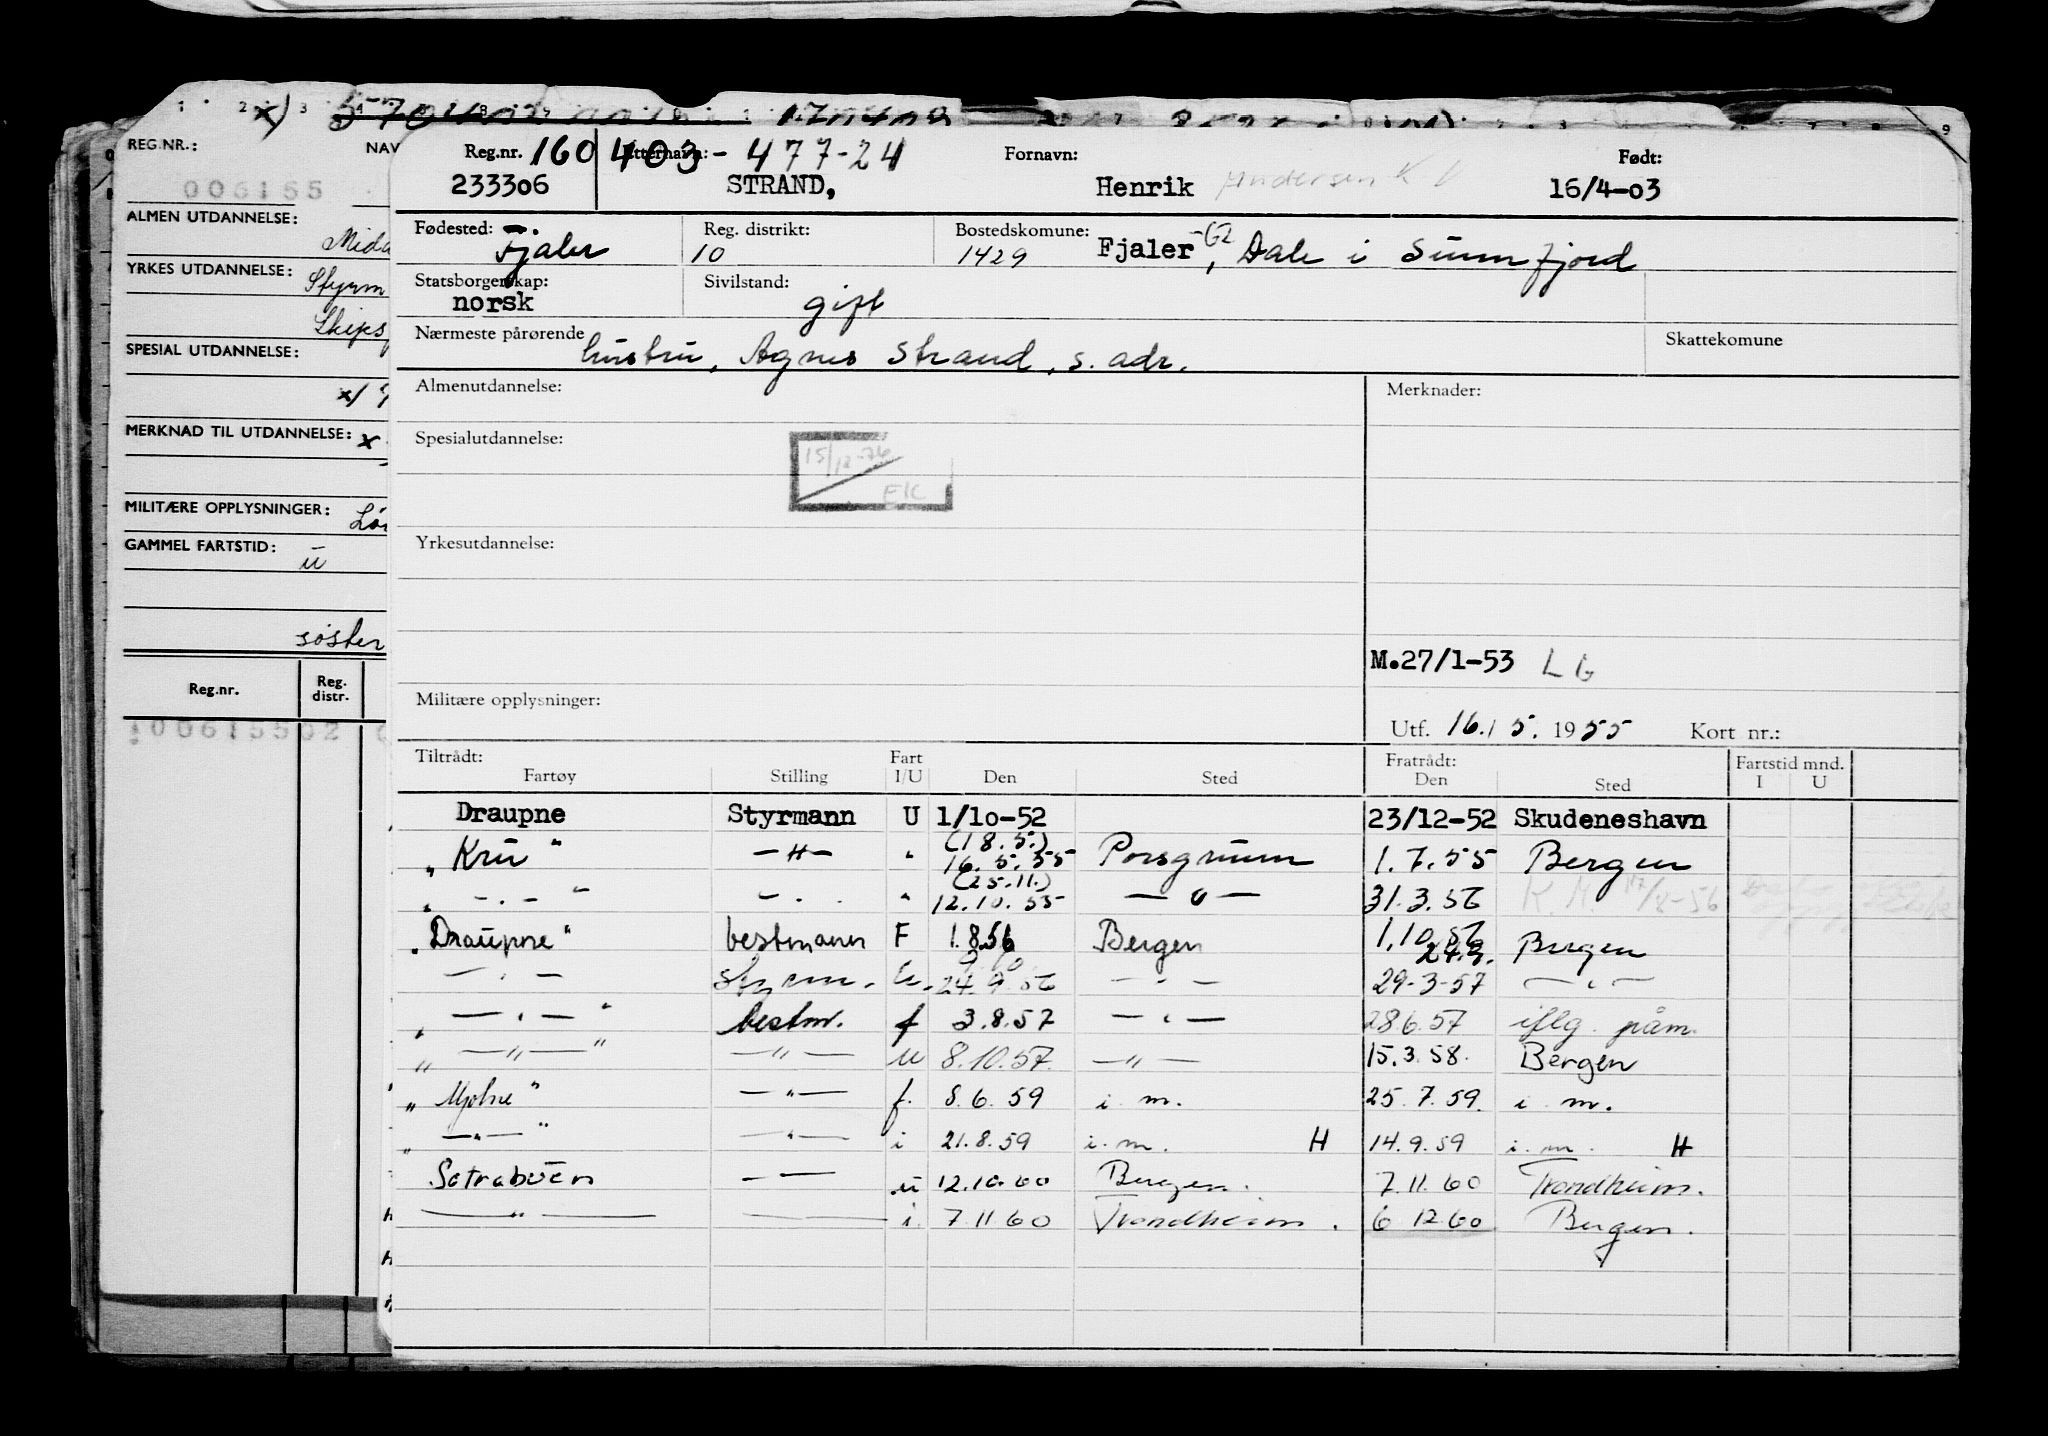 REG.NR.: NAV
006155
ALMEN UTDANNELSE:
YRKES UTDANNELSE: Styrm
Skips
SPESIAL UTDANNELSE:
x/
MERKNAD TIL UTDANNELSE: x
MILITÆRE OPPLYSNINGER:
GAMMEL FARTSTID: u
søster
Reg.nr. Reg. distr.
Reg.nr. 160403-477-24 Etternavn: Fornavn: Født:
233306 STRAND, Henrik Andersen 16/4-03
Fødested: Fjaler Reg. distrikt: 10 Bostedskommune: 1429 Fjaler -62, Dale i Sunnfjord
Statsborgerskap: norsk Sivilstand: gift
Nærmeste pårørende hustru, Agnes Strand, s. adr. Skattekomune
Almenutdannelse: Merknader:
Spesialutdannelse: 15/12-76 EK
Yrkesutdannelse:
M.27/1-53 LG
Militære opplysninger: Utf. 16./5. 1955 Kort nr.:
Tiltrådt: Fart Fratrådt: Fartstid mnd.
Fartøy Stilling I/U Den Sted Den Sted I U
Draupne Styrmann U 1/10-52 23/12-52 Skudeneshavn
(18.5.)
„Kru" —"— " 16.5.55 Porsgrunn 1.7.55 Bergen
(25.11.)
„ —.— " —.. " 12.10.55 —"— 31.3.56 K.M. 17/8-56
„Draupne" bestmann F 1.8.56 Bergen 1.10.56 Bergen
24.9.
—.— styrm. U. 24.9.56 —.— 29-3-57 —.—
„ —.— " bestm. f 3.8.57 —.— 28.6.57 iflg. påm.
„ —"— " —"— u 8.10.57. —"— 15.3.58. Bergen
„Mjølne" —"— f. 8.6.59 i.m. 25.7.59. i.m.
„ —"— " —"— i 21.8.59 i.m. H 14.9.59 i.m. H
Sotrabuen — — u 12.10.60 Bergen. 7.11.60 Trondheim.
—"— — i. 7.11.60 Trondheim. 6.12.60 Bergen.